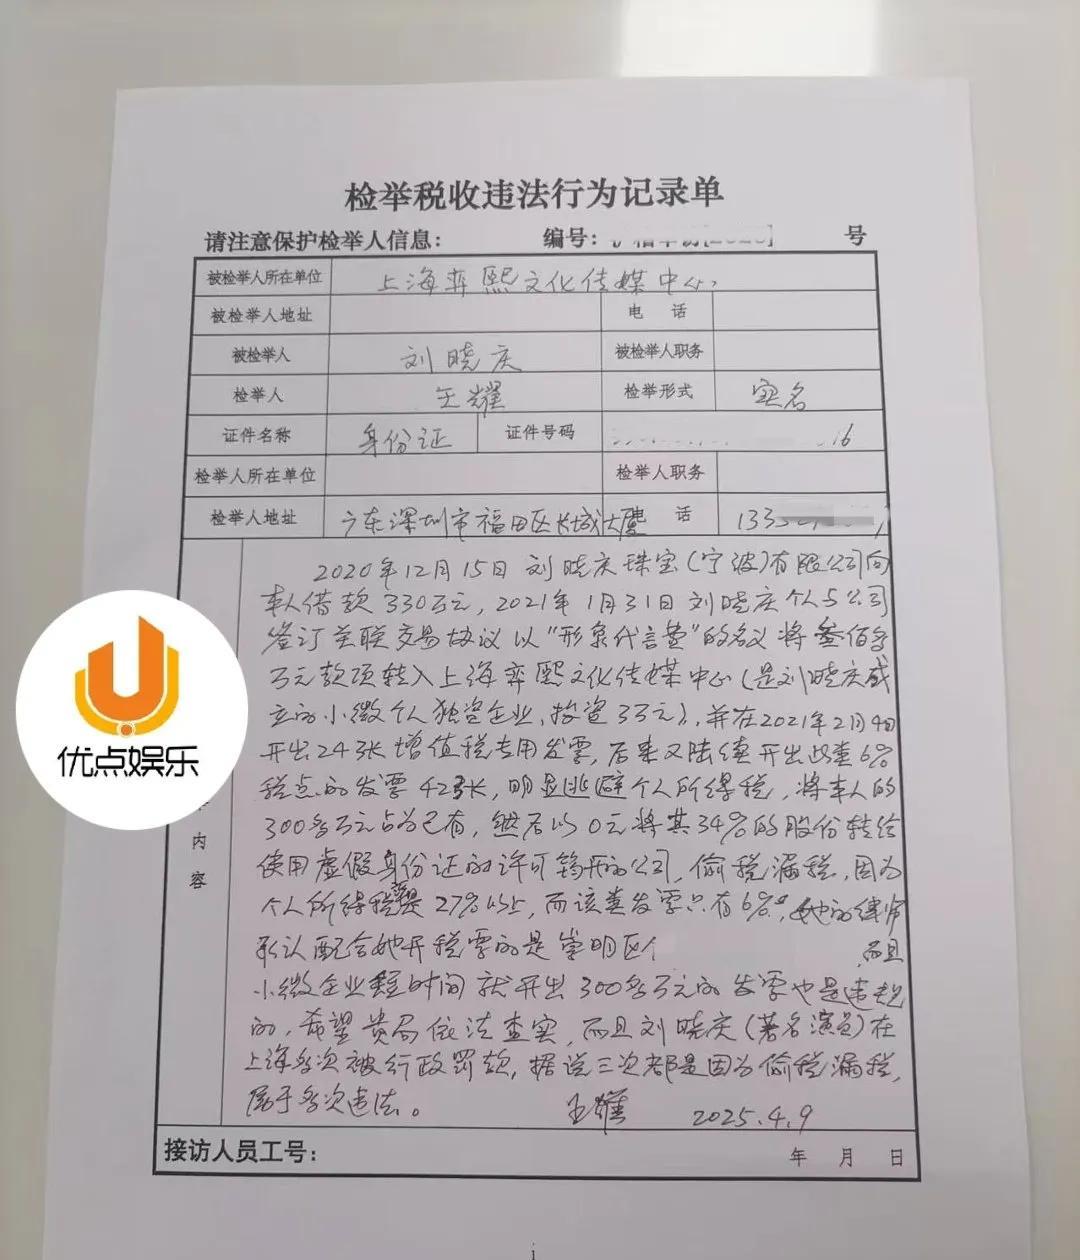 检举税收违法行为记录单
请注意保护检举人信息： 编号： 号
被检举人所在单位 上海弈熙文化传媒中心
被检举人地址 电 话
被检举人 刘晓庆 被检举人职务
检举人 王耀 检举形式 实名
证件名称 身份证 证件号码 16
检举人所在单位 检举人职务
检举人地址 广东深圳市福田区长城大厦 电 话 133
2020年12月15日刘晓庆珠宝(宁波)有限公司向
本人借款330万元,2021年1月31日刘晓庆个人与公司
签订关联交易协议以"形象代言费"的名义将叁佰多
万元款项转入上海弈熙文化传媒中心(是刘晓庆成
立的小微个人独资企业,投资3万元),并在2021年2月4日
开出24张增值税专用发票,后来又陆续开出此类6%
税点的发票42张,明显逃避个人所得税,将本人的
300多万元占为己有,然后以0元将其34%的股份转给
使用虚假身份证的许可筠开的公司,偷税漏税,因为
个人所得税是27%以上,而该类发票只有6%,她的律师
承认配合她开税票的是崇明区 而且
小微企业短时间就开出300多万元的发票也是违规
的,希望贵局依法查实,而且刘晓庆(著名演员)在
上海多次被行政罚款,据说三次都是因为偷税漏税,
属于多次违法。 王耀 2025.4.9
内
容
接访人员工号： 年 月 日
1
优点娱乐